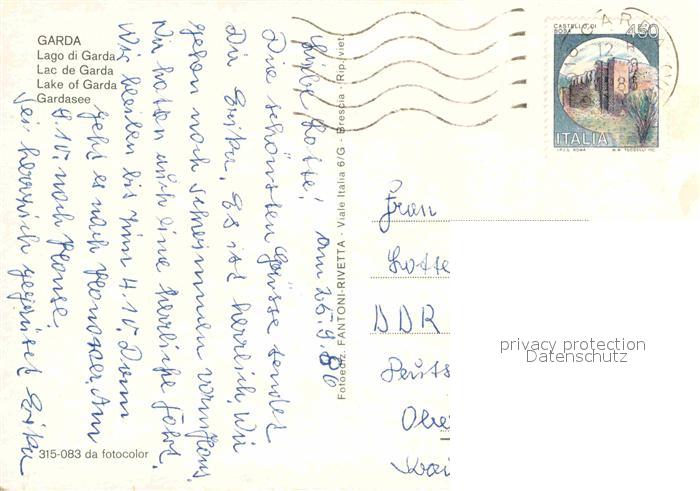 GARDA
Lago di Garda
Lac de Garda
Lake of Garda
Gardasee
Liebe Lotte! am 26.9.86
Die schönsten Grüsse sendet
Dir Erika. Es ist herrlich. Wir
gehen noch schwimmen
Wir hatten eine herrliche Fahrt.
Wir bleiben bis zum 4.10. Dann
geht es nach Am
9.10. nach Hause.
Sei herzlich gegrüsst Erika
315-083 da fotocolor
Fotoediz. FANTONI-RIVETTA - Viale Italia 6/G - Brescia - Rip. viet.
CASTELLO DI
BOSA
450
ITALIA
I.P.Z.S. ROMA
Frau
Lotte
DDR
privacy protection
Datenschutz